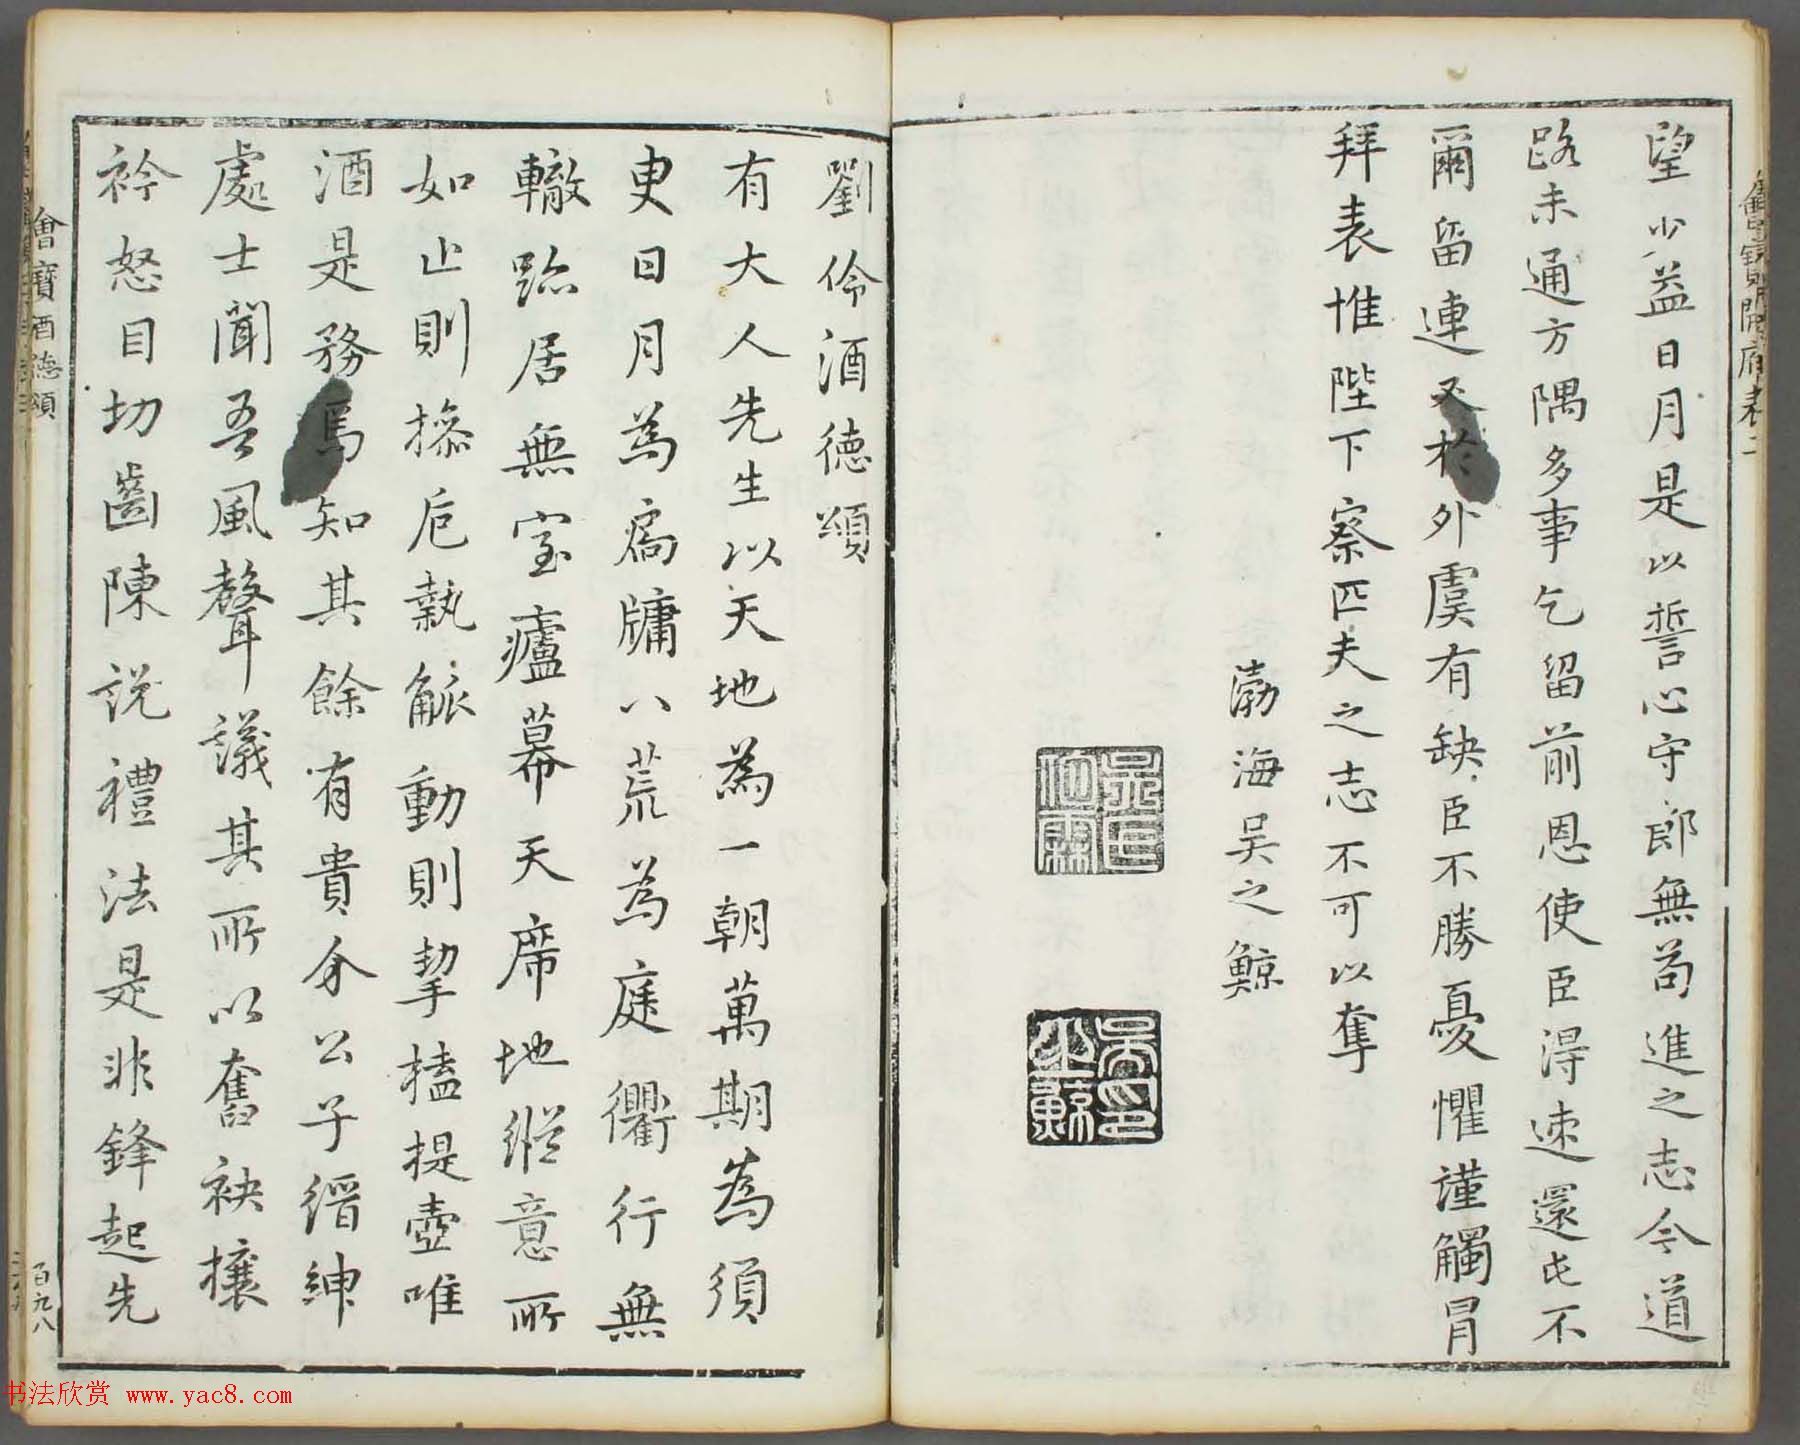 望少益日月是以誓心守郎無苟進之志今道
路未通方隅多事乞留前恩使臣得速還屯不
爾留連又於外虞有缺臣不勝憂懼謹觸冒
拜表惟陛下察匹夫之志不可以奪
渤海吴之鯨
吴之鯨印
劉伶酒德頌
有大人先生以天地為一朝萬期為須
臾日月為扃牖八荒為庭衢行無
轍跡居無室廬幕天席地縱意所
如止則操卮執觚動則挈榼提壺唯
酒是務焉知其餘有貴介公子縉紳
處士聞吾風聲議其所以奮袂攘
衿怒目切齒陳說禮法是非鋒起先
會寶酒德頌
百九八
书法欣赏 www.yac8.com